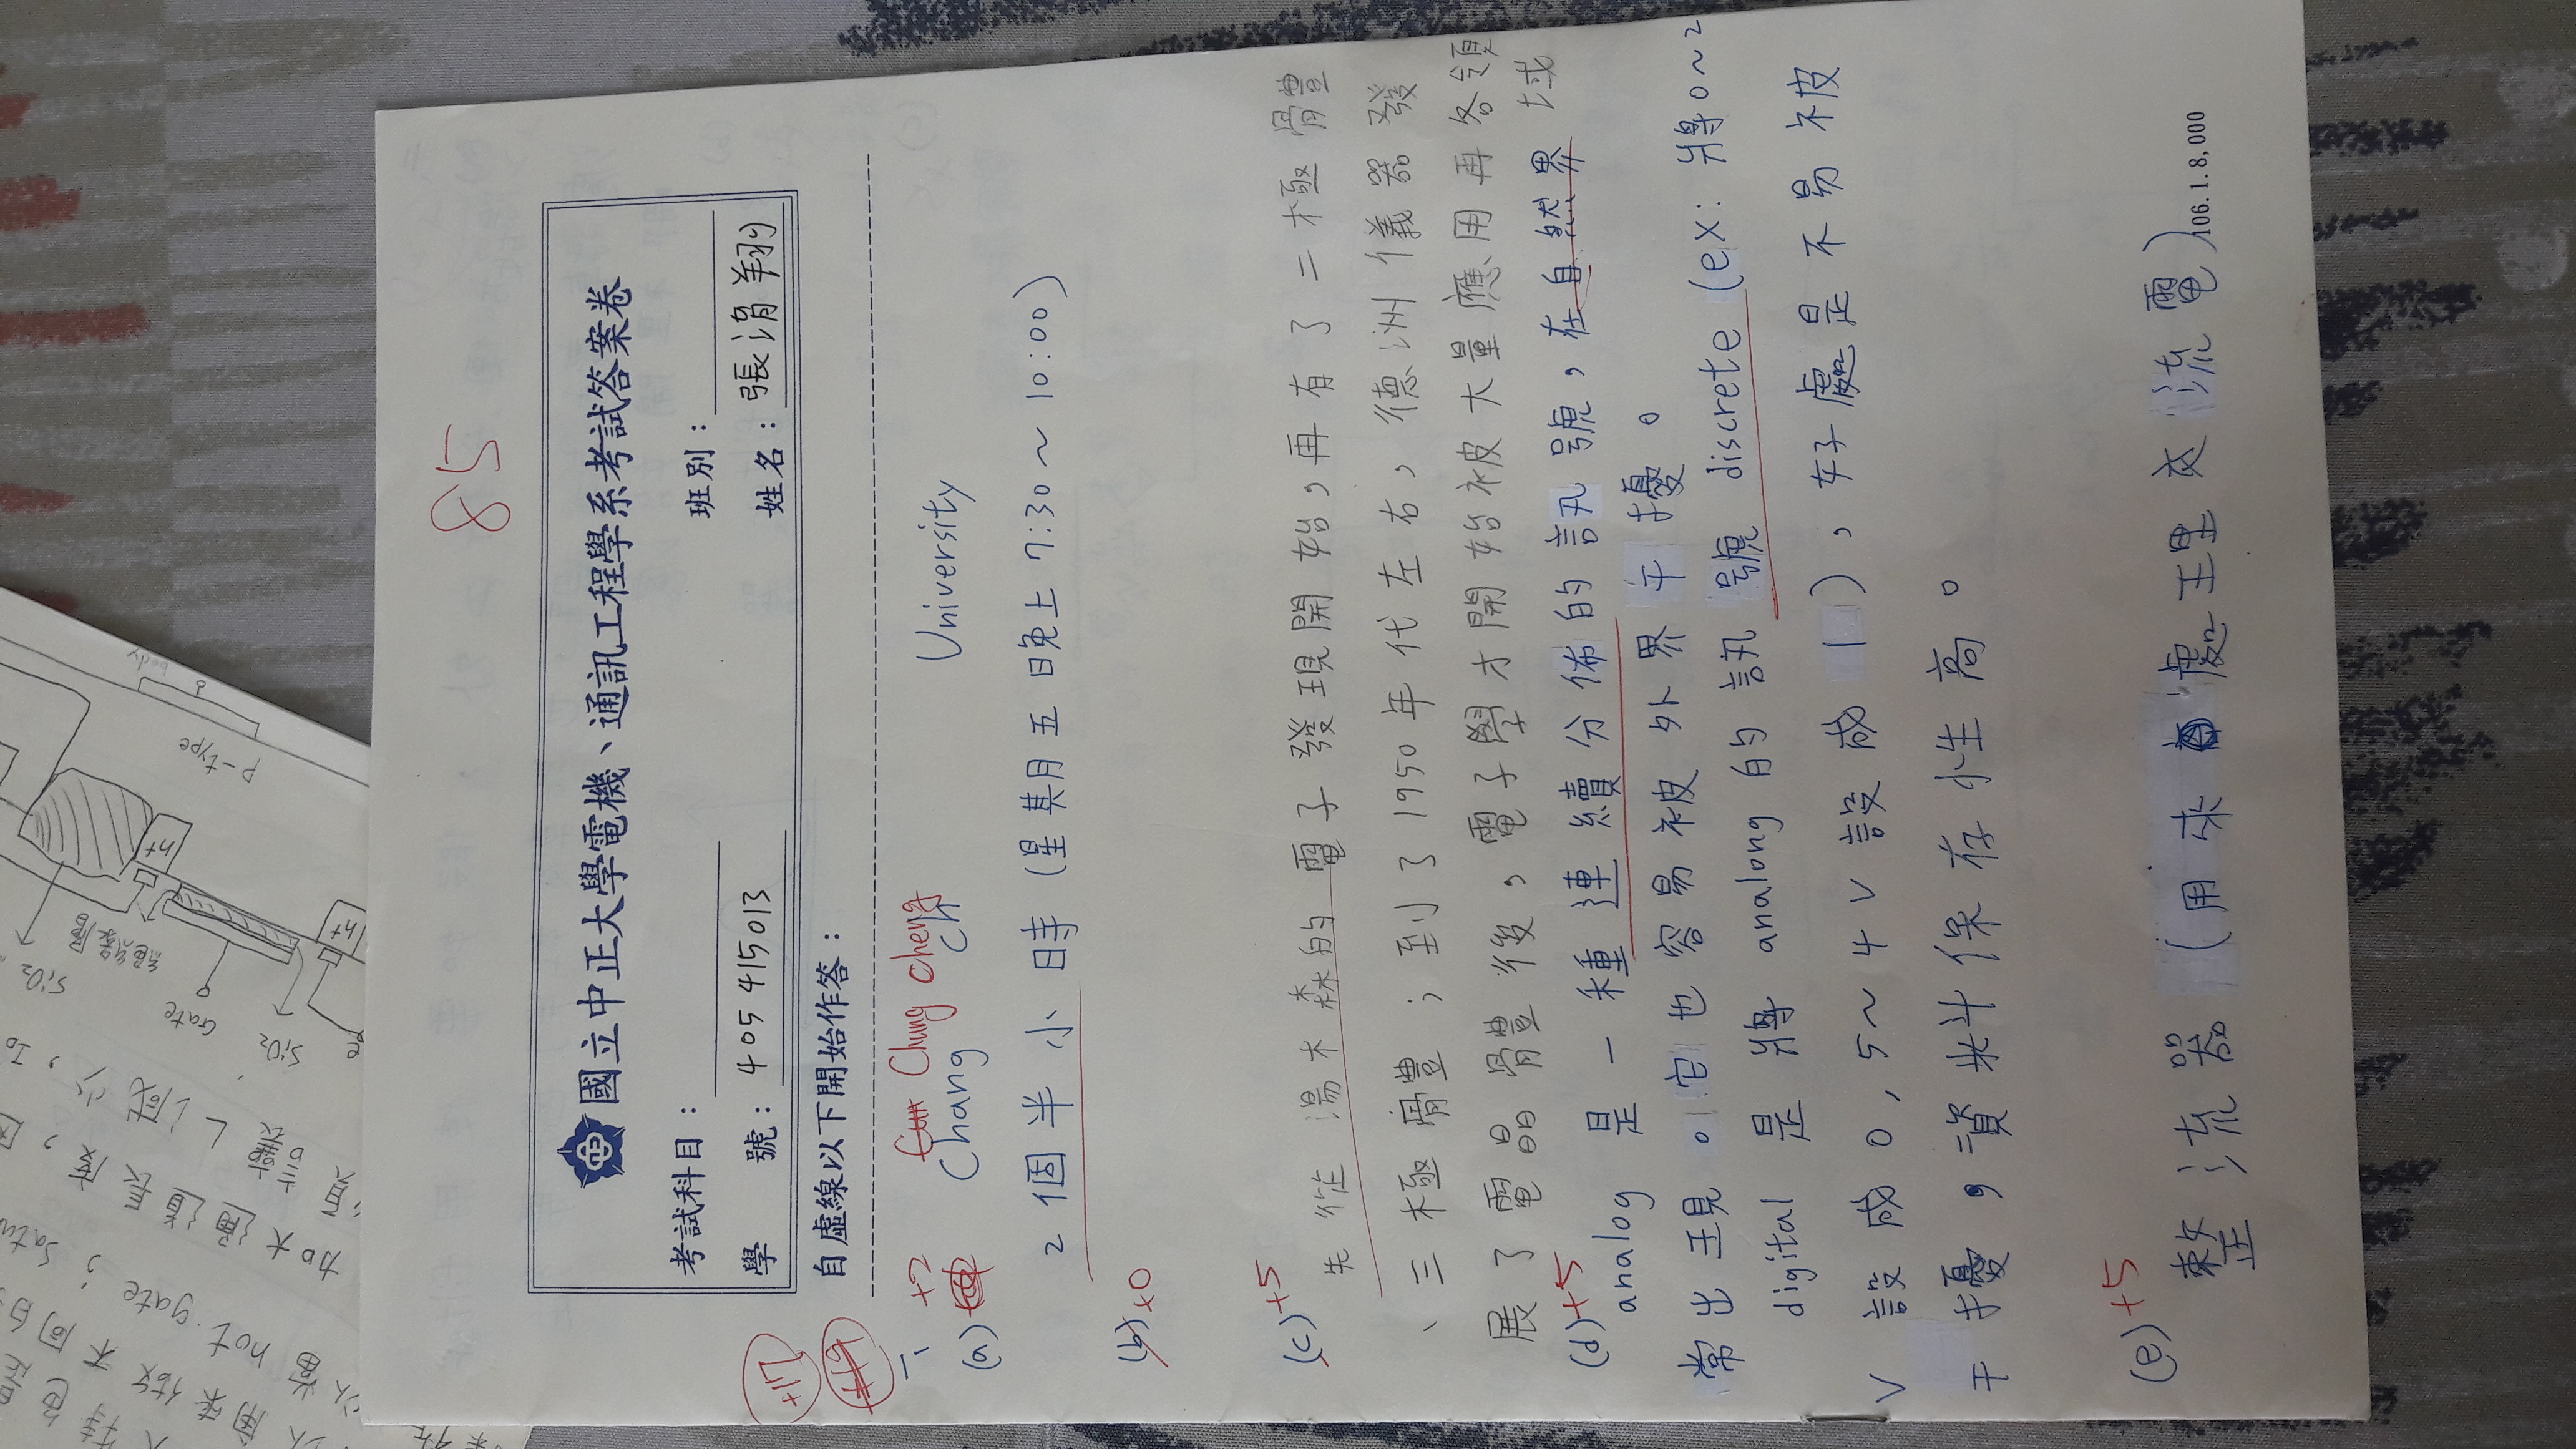 特色是
用來做不同的
以當 not gate ; satu
加大通道長度,因
須讓L減少, I₀
SiO₂
絕緣層
Gate
SiO₂
n+
n+
p-type
body
85
國立中正大學電機、通訊工程學系考試答案卷
考試科目:
班別:
學 號: 405415013
姓名: 張淯翔
+17
+19
自虛線以下開始作答:
一、 +2 Cun Chung cheng
(a) Chang ch University
2個半小時(星期五晚上7:30~10:00)
(b) +0
(c) +5
先從湯木森的電子發現開始,再有了二極體
、三極體;到了1950年代左右,德洲儀器發
展了電晶體後,電子學才開始被大量應用再各領
域
(d) +5
analog 是一種連續分佈的訊號,在自然界
常出現。它也容易被外界干擾。
digital 是將 analong 的訊號 discrete (ex: 將0~2
V 設成0, 5~4V設成1),好處是不易被
干擾,資料保存性高。
(e) +5
整流器(用來處理交流電)
106.1.8,000